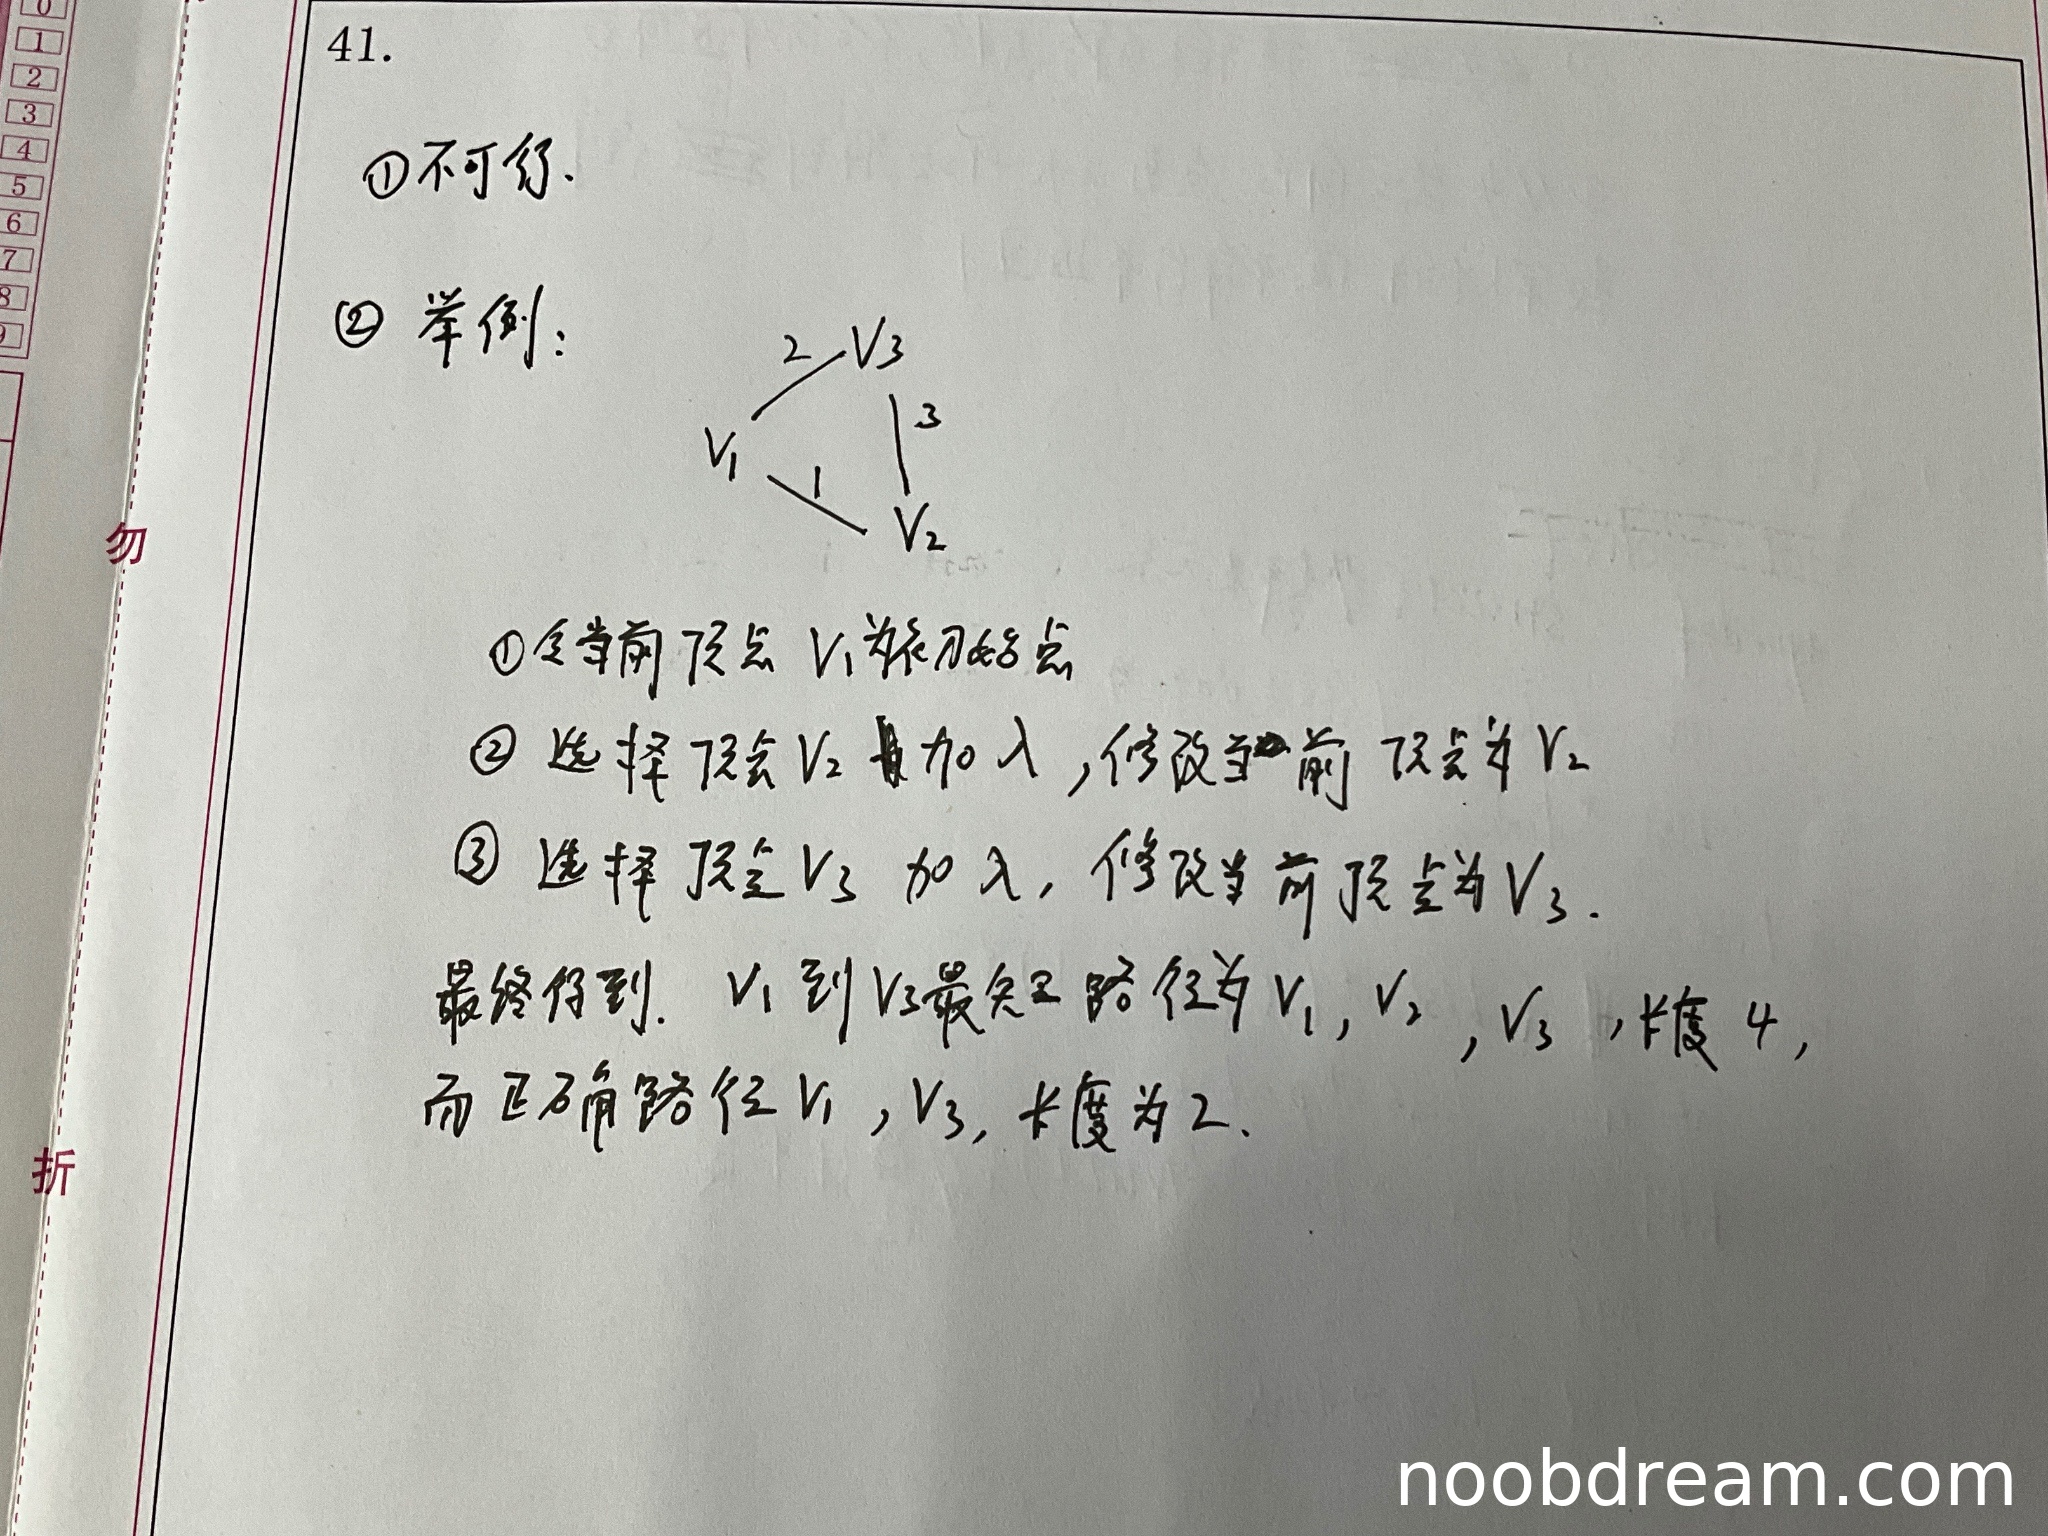 0
1
2
3
4
5
6
7
8
9
勿
折
41.
①不可行.
② 举例:
2 V3
3
V1
1
V2
①令当前顶点 V1为初始点
② 选择顶点V2 加入,修改当前顶点为V2
③ 选择顶点V3 加入,修改当前顶点为V3.
最终得到. V1到V3最短路径为V1,V2,V3,长度4,
而正确路径V1,V3,长度为2.
noobdream.com